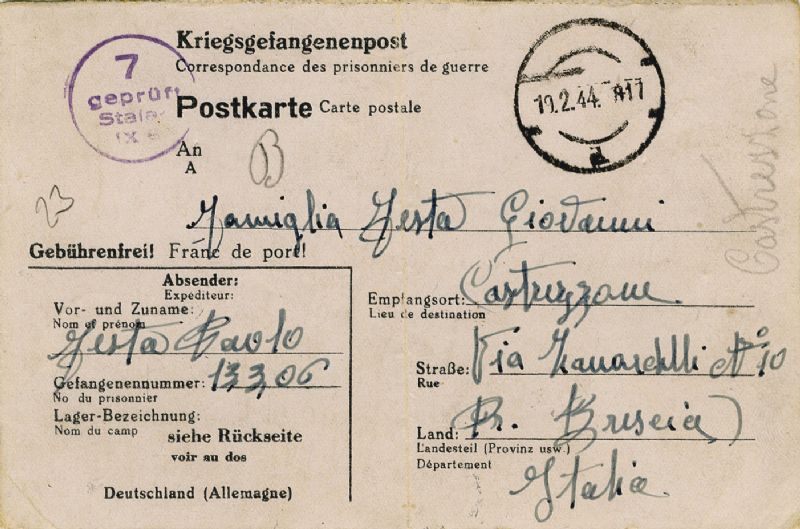 Kriegsgefangenenpost
Correspondance des prisonniers de guerre
7
geprüft
Stala
IX
Postkarte Carte postale
19.2.44.
An
A
B
23
Famiglia Festa Giovanni
Gebührenfrei! Franc de port!
Absender:
Expéditeur:
Vor- und Zuname:
Nom et prénom
Festa Paolo
Gefangenennummer: 13306
No du prisonnier
Lager-Bezeichnung:
Nom du camp
siehe Rückseite
voir au dos
Deutschland (Allemagne)
Empfangsort: Castrezzone
Lieu de destination
Straße: Via Zanardelli N° 10
Rue
Land: Pr. Brescia)
Landesteil (Provinz usw.)
Département
Italia.
Castrezzone